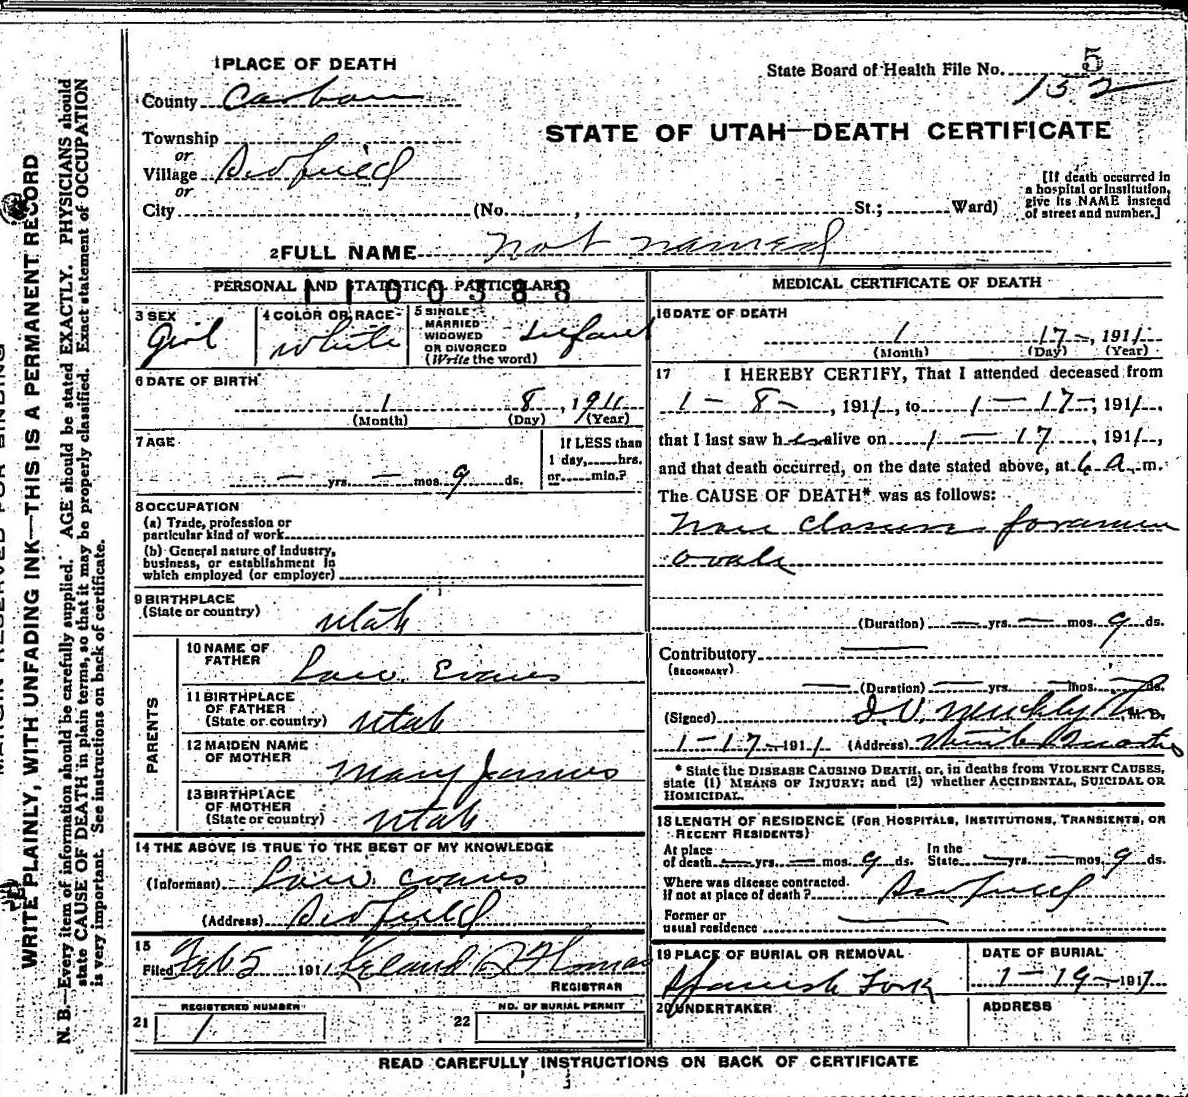 MARGIN RESERVED FOR BINDING
WRITE PLAINLY, WITH UNFADING INK—THIS IS A PERMANENT RECORD
N. B.—Every item of information should be carefully supplied. AGE should be stated EXACTLY. PHYSICIANS should
state CAUSE OF DEATH in plain terms, so that it may be properly classified. Exact statement of OCCUPATION
is very important. See instructions on back of certificate.
1 PLACE OF DEATH
County Carbon
Township
or
Village
or
City (No. , St.; Ward)
State Board of Health File No. 5
152
STATE OF UTAH—DEATH CERTIFICATE
[If death occurred in
a hospital or institution,
give its NAME instead
of street and number.]
2 FULL NAME not named
PERSONAL AND STATISTICAL PARTICULARS
1100388
3 SEX
Girl
4 COLOR OR RACE
White
5 SINGLE
MARRIED
WIDOWED
OR DIVORCED
(Write the word)
Infant
6 DATE OF BIRTH
1 8, 1911
(Month) (Day) (Year)
7 AGE
— yrs. — mos. 9 ds.
If LESS than
1 day, hrs.
or min.?
8 OCCUPATION
(a) Trade, profession or
particular kind of work
(b) General nature of industry,
business, or establishment in
which employed (or employer)
9 BIRTHPLACE
(State or country)
Utah
PARENTS
10 NAME OF
FATHER
Evans
11 BIRTHPLACE
OF FATHER
(State or country) Utah
12 MAIDEN NAME
OF MOTHER
Mary James
13 BIRTHPLACE
OF MOTHER
(State or country) Utah
14 THE ABOVE IS TRUE TO THE BEST OF MY KNOWLEDGE
(Informant) Evans
(Address)
15
Filed Feb 5 1911 Leland Thomas
REGISTRAR
REGISTERED NUMBER
21 1
NO. OF BURIAL PERMIT
22
MEDICAL CERTIFICATE OF DEATH
16 DATE OF DEATH
1 17—, 1911
(Month) (Day) (Year)
17 I HEREBY CERTIFY, That I attended deceased from
1 — 8 —, 1911, to 1 — 17—, 1911.
that I last saw her alive on 1 — 17, 1911,
and that death occurred, on the date stated above, at 6 a. m.
The CAUSE OF DEATH* was as follows:
Non closure foramen
ovale
(Duration) — yrs. — mos. 9 ds.
Contributory —
(SECONDARY)
— (Duration) — yrs. mos. ds.
(Signed) M. D.
1—17—1911 (Address)
* State the DISEASE CAUSING DEATH, or, in deaths from VIOLENT CAUSES,
state (1) MEANS OF INJURY; and (2) whether ACCIDENTAL, SUICIDAL OR
HOMICIDAL.
18 LENGTH OF RESIDENCE (FOR HOSPITALS, INSTITUTIONS, TRANSIENTS, OR
RECENT RESIDENTS)
At place
of death — yrs. — mos. 9 ds.
In the
State — yrs. — mos. 9 ds.
Where was disease contracted.
if not at place of death?
Former or
usual residence —
19 PLACE OF BURIAL OR REMOVAL
Spanish Fork
DATE OF BURIAL
1—19—1917
20 UNDERTAKER
ADDRESS
READ CAREFULLY INSTRUCTIONS ON BACK OF CERTIFICATE